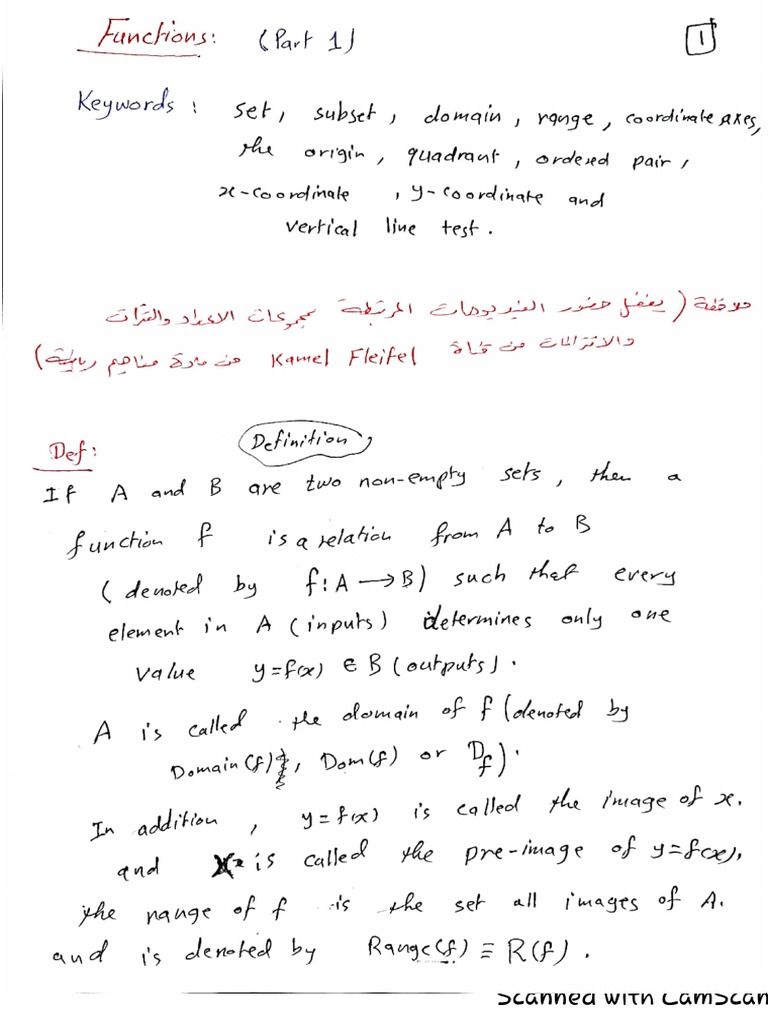 Functions: (Part 1)
1
Keywords : set, subset, domain, range, coordinate axes,
the origin, quadrant, ordered pair,
x-coordinate , y-coordinate and
vertical line test.
ملاحظة ( يفضل حضور الفيديوهات المرتبطة بمجموعات الاعداد والفترات
والاقترانات من قناة Kamel Fleifel من مادة مفاهيم رياضية)
Def:
Definition
If A and B are two non-empty sets, then a
function f is a relation from A to B
(denoted by f: A → B) such that every
element in A (inputs) determines only one
value y=f(x) ∈ B (outputs).
A is called the domain of f (denoted by
Domain(f), Dom(f) or D_f).
In addition, y=f(x) is called the image of x.
and x is called the pre-image of y=f(x),
the range of f is the set all images of A.
and is denoted by Range(f) ≡ R(f).
Scanned with CamScan